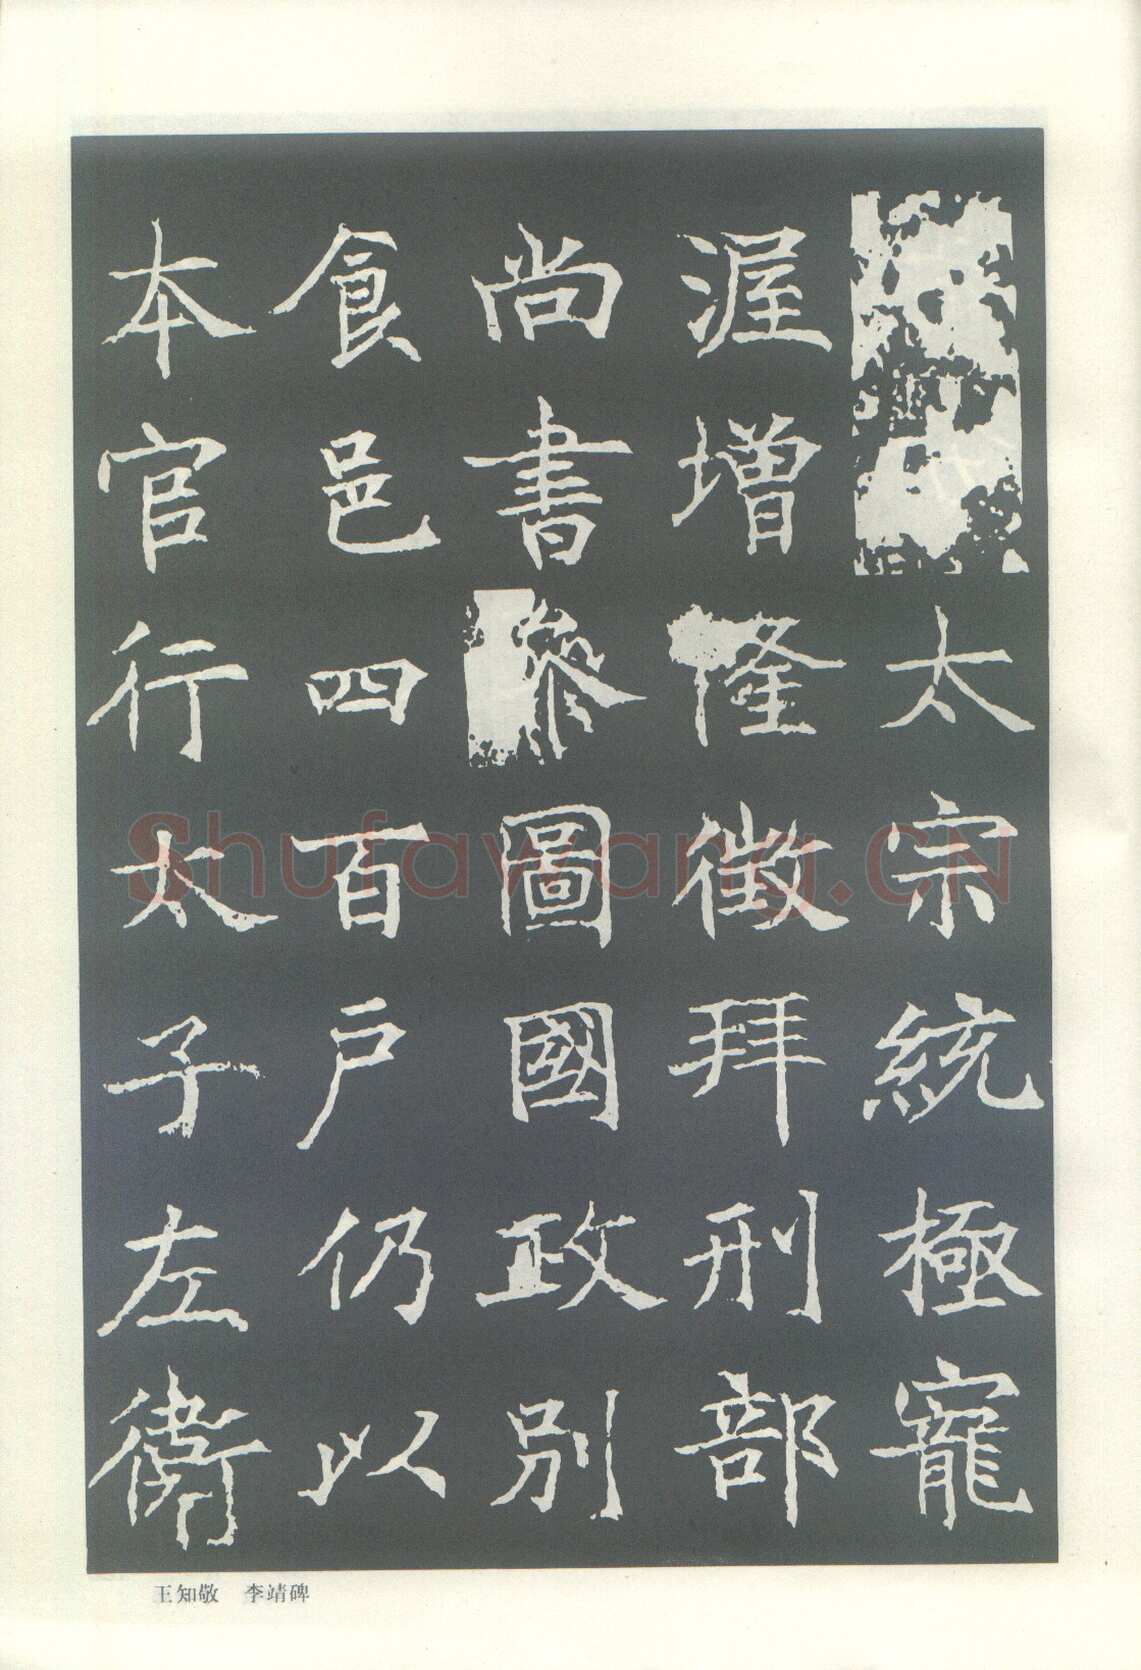 太宗統極寵
渥增隆徵拜刑部
尚書參圖國政別
食邑四百戶仍以
本官行太子左衛
王知敬 李靖碑
Shufawang.CN